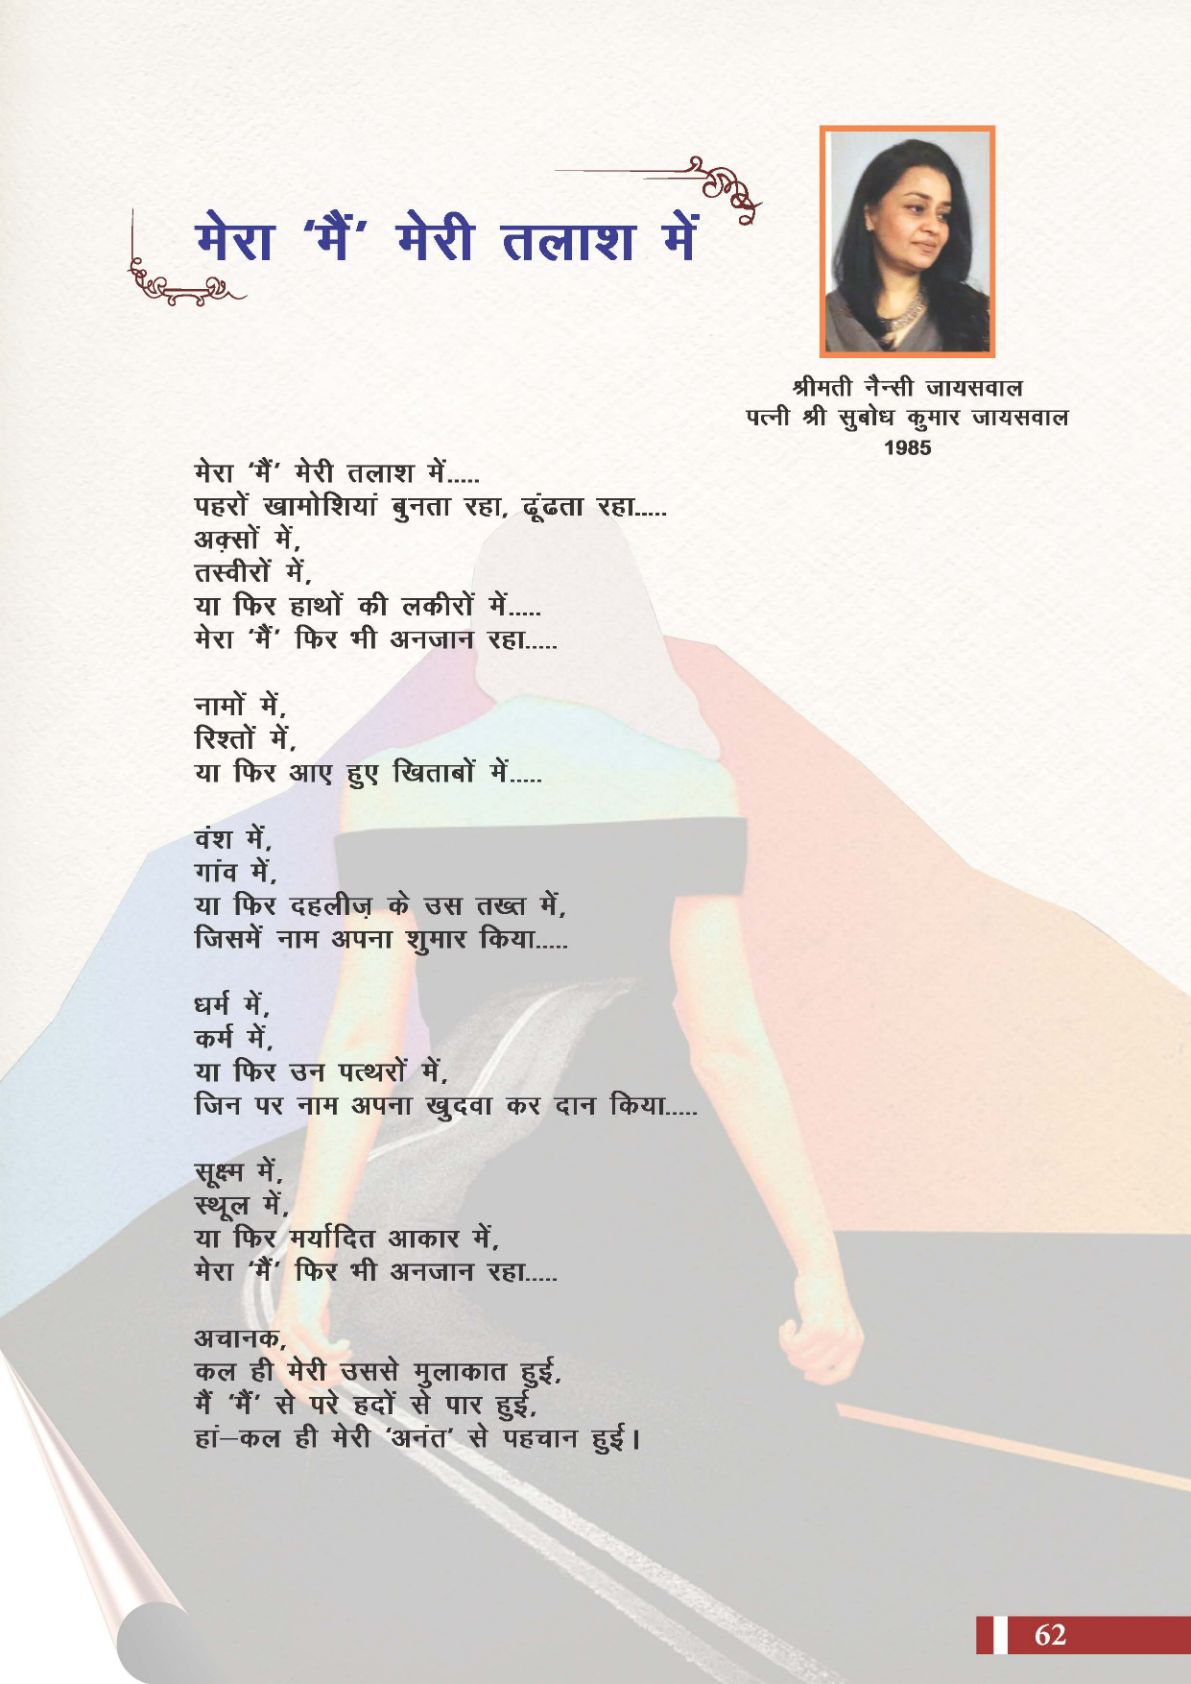 मेरा ‘मैं’ मेरी तलाश में
श्रीमती नैन्सी जायसवाल
पत्नी श्री सुबोध कुमार जायसवाल
1985
मेरा ‘मैं’ मेरी तलाश में.....
पहरों खामोशियां बुनता रहा, ढूंढता रहा.....
अक़्सों में,
तस्वीरों में,
या फिर हाथों की लकीरों में.....
मेरा ‘मैं’ फिर भी अनजान रहा.....
नामों में,
रिश्तों में,
या फिर आए हुए खिताबों में.....
वंश में,
गांव में,
या फिर दहलीज़ के उस तख्त में,
जिसमें नाम अपना शुमार किया.....
धर्म में,
कर्म में,
या फिर उन पत्थरों में,
जिन पर नाम अपना खुदवा कर दान किया.....
सूक्ष्म में,
स्थूल में,
या फिर मर्यादित आकार में,
मेरा ‘मैं’ फिर भी अनजान रहा.....
अचानक,
कल ही मेरी उससे मुलाकात हुई,
मैं ‘मैं’ से परे हदों से पार हुई,
हां–कल ही मेरी ‘अनंत’ से पहचान हुई।
62